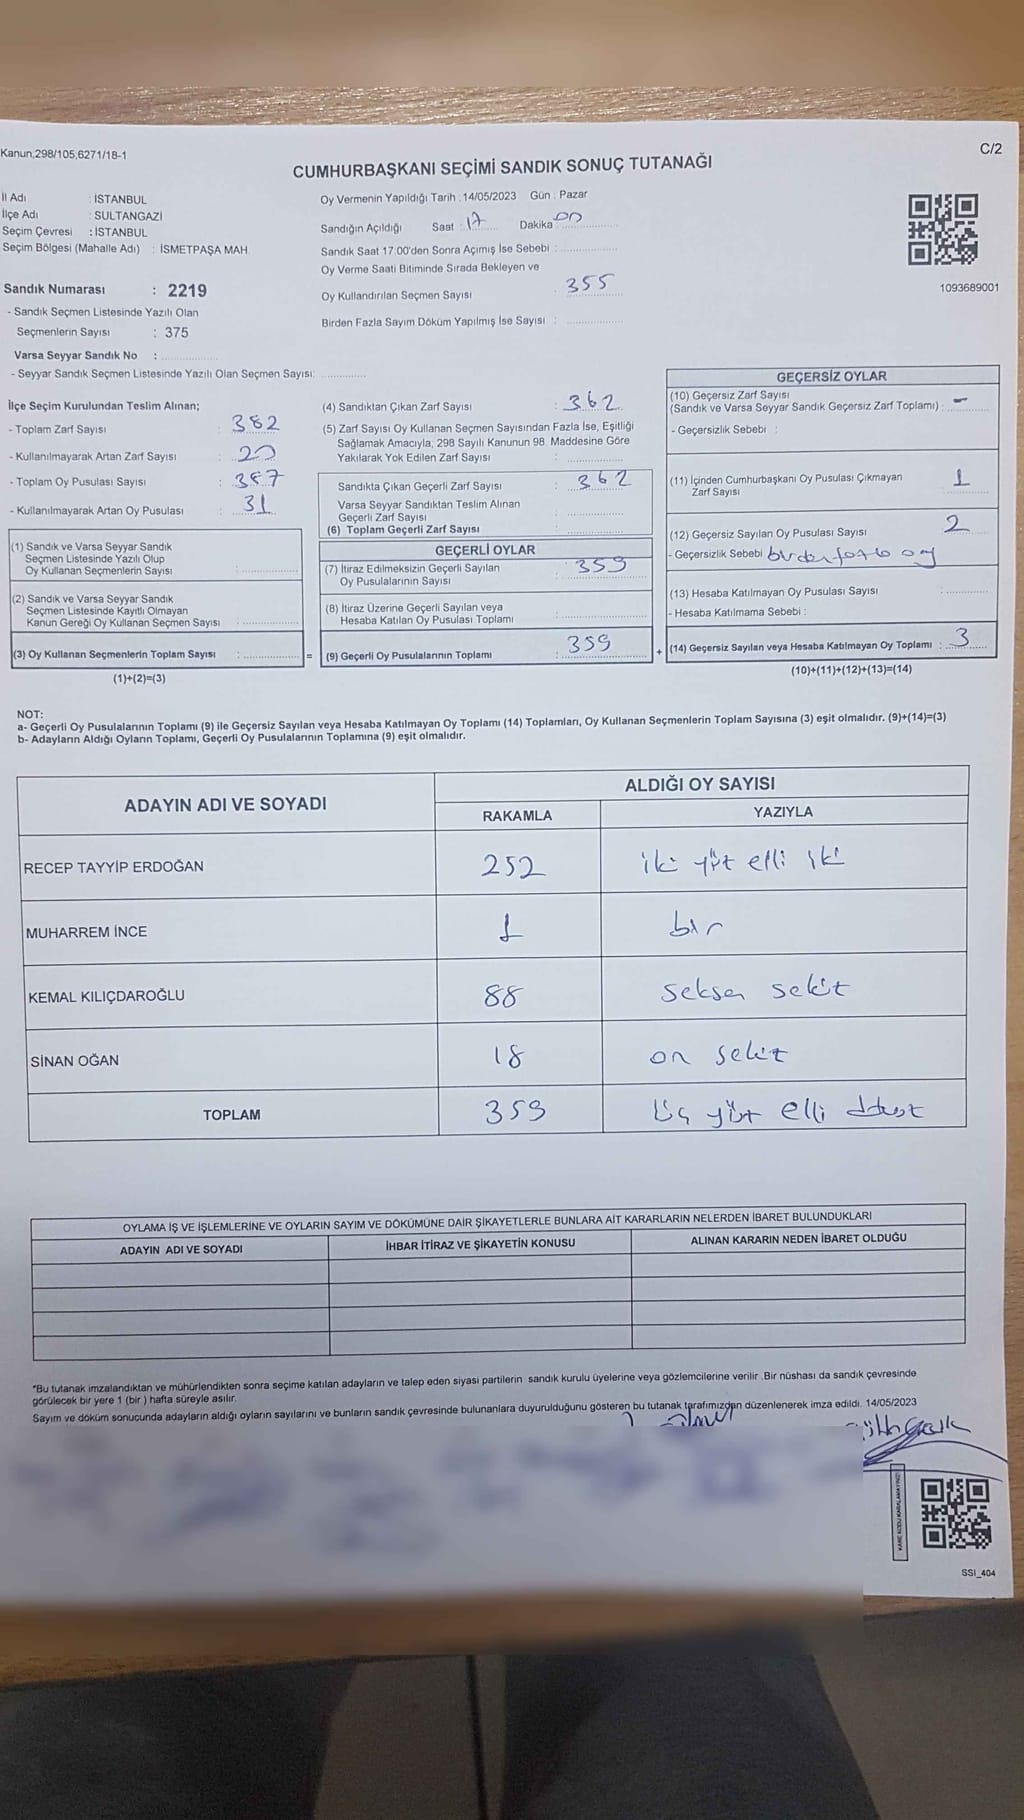 Kanun,298/105,6271/18-1
C/2
CUMHURBAŞKANI SEÇİMİ SANDIK SONUÇ TUTANAĞI
İl Adı : İSTANBUL
İlçe Adı : SULTANGAZİ
Seçim Çevresi : İSTANBUL
Seçim Bölgesi (Mahalle Adı) : İSMETPAŞA MAH.
Sandık Numarası : 2219
- Sandık Seçmen Listesinde Yazılı Olan
Seçmenlerin Sayısı : 375
Varsa Seyyar Sandık No :
- Seyyar Sandık Seçmen Listesinde Yazılı Olan Seçmen Sayısı:
Oy Vermenin Yapıldığı Tarih : 14/05/2023 Gün : Pazar
Sandığın Açıldığı Saat : 17 Dakika 00
Sandık Saat 17:00'den Sonra Açımış İse Sebebi :
Oy Verme Saati Bitiminde Sırada Bekleyen ve
Oy Kullandırılan Seçmen Sayısı : 355
Birden Fazla Sayım Döküm Yapılmış İse Sayısı :
1093689001
İlçe Seçim Kurulundan Teslim Alınan;
- Toplam Zarf Sayısı : 382
- Kullanılmayarak Artan Zarf Sayısı : 20
- Toplam Oy Pusulası Sayısı : 387
- Kullanılmayarak Artan Oy Pusulası : 31
(1) Sandık ve Varsa Seyyar Sandık
Seçmen Listesinde Yazılı Olup
Oy Kullanan Seçmenlerin Sayısı :
(2) Sandık ve Varsa Seyyar Sandık
Seçmen Listesinde Kayıtlı Olmayan
Kanun Gereği Oy Kullanan Seçmen Sayısı :
(3) Oy Kullanan Seçmenlerin Toplam Sayısı : =
(1)+(2)=(3)
(4) Sandıktan Çıkan Zarf Sayısı : 362
(5) Zarf Sayısı Oy Kullanan Seçmen Sayısından Fazla İse, Eşitliği
Sağlamak Amacıyla, 298 Sayılı Kanunun 98. Maddesine Göre
Yakılarak Yok Edilen Zarf Sayısı :
Sandıkta Çıkan Geçerli Zarf Sayısı : 362
Varsa Seyyar Sandıktan Teslim Alınan
Geçerli Zarf Sayısı :
(6) Toplam Geçerli Zarf Sayısı :
GEÇERLİ OYLAR
(7) İtiraz Edilmeksizin Geçerli Sayılan 359
Oy Pusulalarının Sayısı :
(8) İtiraz Üzerine Geçerli Sayılan veya
Hesaba Katılan Oy Pusulası Toplamı :
(9) Geçerli Oy Pusulalarının Toplamı : 359 +
GEÇERSİZ OYLAR
(10) Geçersiz Zarf Sayısı
(Sandık ve Varsa Seyyar Sandık Geçersiz Zarf Toplamı) : -
- Geçersizlik Sebebi :
(11) İçinden Cumhurbaşkanı Oy Pusulası Çıkmayan 1
Zarf Sayısı :
(12) Geçersiz Sayılan Oy Pusulası Sayısı : 2
- Geçersizlik Sebebi : birden fazla oy
(13) Hesaba Katılmayan Oy Pusulası Sayısı :
- Hesaba Katılmama Sebebi :
(14) Geçersiz Sayılan veya Hesaba Katılmayan Oy Toplamı : 3
(10)+(11)+(12)+(13)=(14)
NOT:
a- Geçerli Oy Pusulalarının Toplamı (9) ile Geçersiz Sayılan veya Hesaba Katılmayan Oy Toplamı (14) Toplamları, Oy Kullanan Seçmenlerin Toplam Sayısına (3) eşit olmalıdır. (9)+(14)=(3)
b- Adayların Aldığı Oyların Toplamı, Geçerli Oy Pusulalarının Toplamına (9) eşit olmalıdır.
ADAYIN ADI VE SOYADI ALDIĞI OY SAYISI
RAKAMLA YAZIYLA
RECEP TAYYİP ERDOĞAN 252 iki yüz elli iki
MUHARREM İNCE 1 bir
KEMAL KILIÇDAROĞLU 88 seksen sekiz
SİNAN OĞAN 18 on sekiz
TOPLAM 359 üç yüz elli dokuz
OYLAMA İŞ VE İŞLEMLERİNE VE OYLARIN SAYIM VE DÖKÜMÜNE DAİR ŞİKAYETLERLE BUNLARA AİT KARARLARIN NELERDEN İBARET BULUNDUKLARI
ADAYIN ADI VE SOYADI İHBAR İTİRAZ VE ŞİKAYETİN KONUSU ALINAN KARARIN NEDEN İBARET OLDUĞU
*Bu tutanak imzalandıktan ve mühürlendikten sonra seçime katılan adayların ve talep eden siyasi partilerin sandık kurulu üyelerine veya gözlemcilerine verilir .Bir nüshası da sandık çevresinde
görülecek bir yere 1 (bir ) hafta süreyle asılır.
Sayım ve döküm sonucunda adayların aldığı oyların sayılarını ve bunların sandık çevresinde bulunanlara duyurulduğunu gösteren bu tutanak tarafımızdan düzenlenerek imza edildi. 14/05/2023
SSI_404